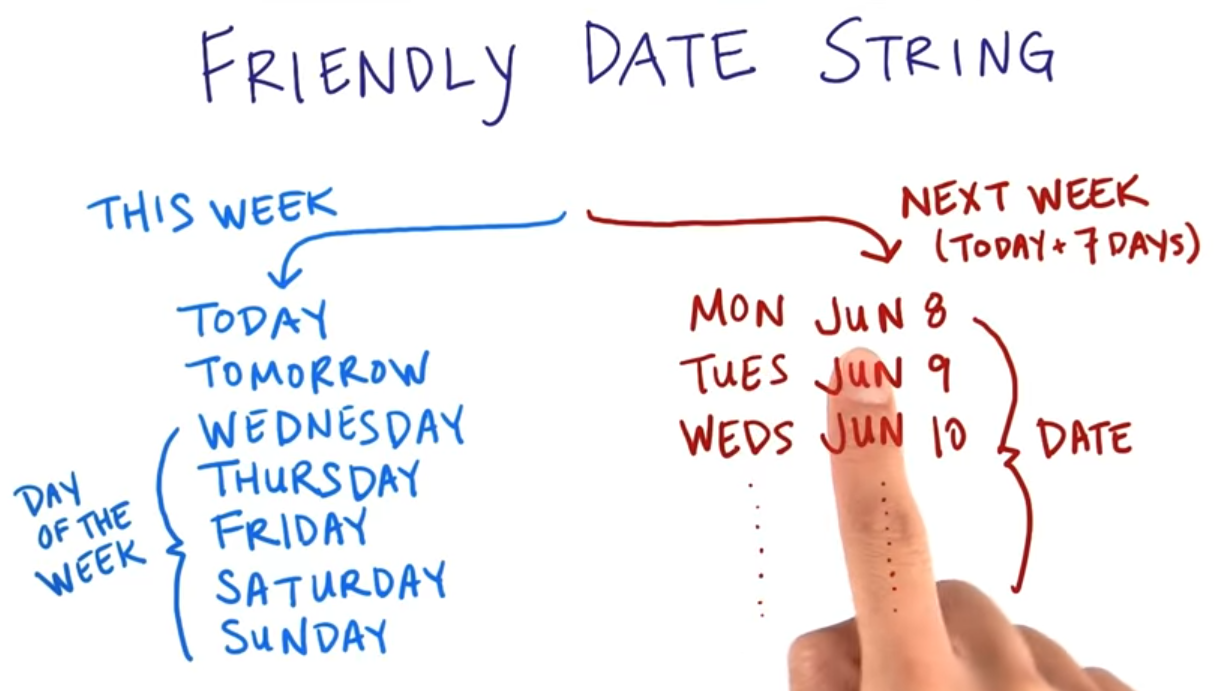 FRIENDLY DATE STRING
THIS WEEK
TODAY
TOMORROW
WEDNESDAY
THURSDAY
FRIDAY
SATURDAY
SUNDAY
DAY
OF THE
WEEK
NEXT WEEK
(TODAY + 7 DAYS)
MON JUN 8
TUES JUN 9
WEDS JUN 10
DATE